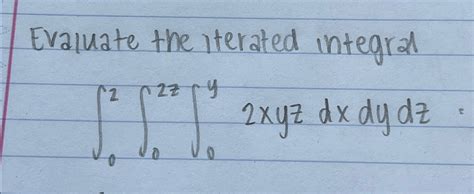 Evaluate the iterated integral
∫₀² ∫₀²ᶻ ∫₀ʸ 2xyz dx dy dz =